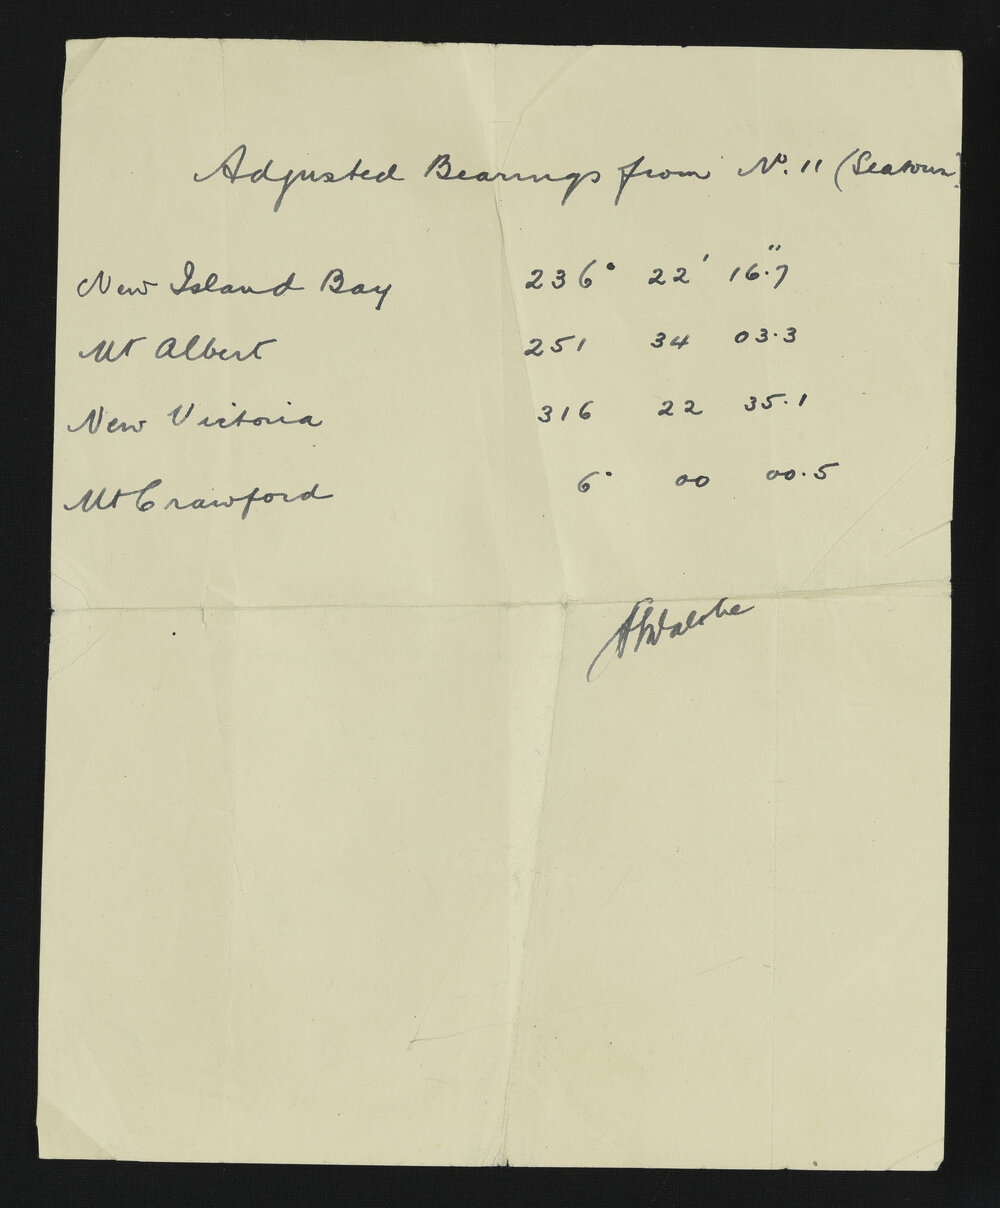 Adjusted Bearings from No. 11 (Seatoun)
New Island Bay 236° 22' 16.7"
Mt Albert 251 34 03.3
New Victoria 316 22 35.1
Mt Crawford 6° 00 00.5